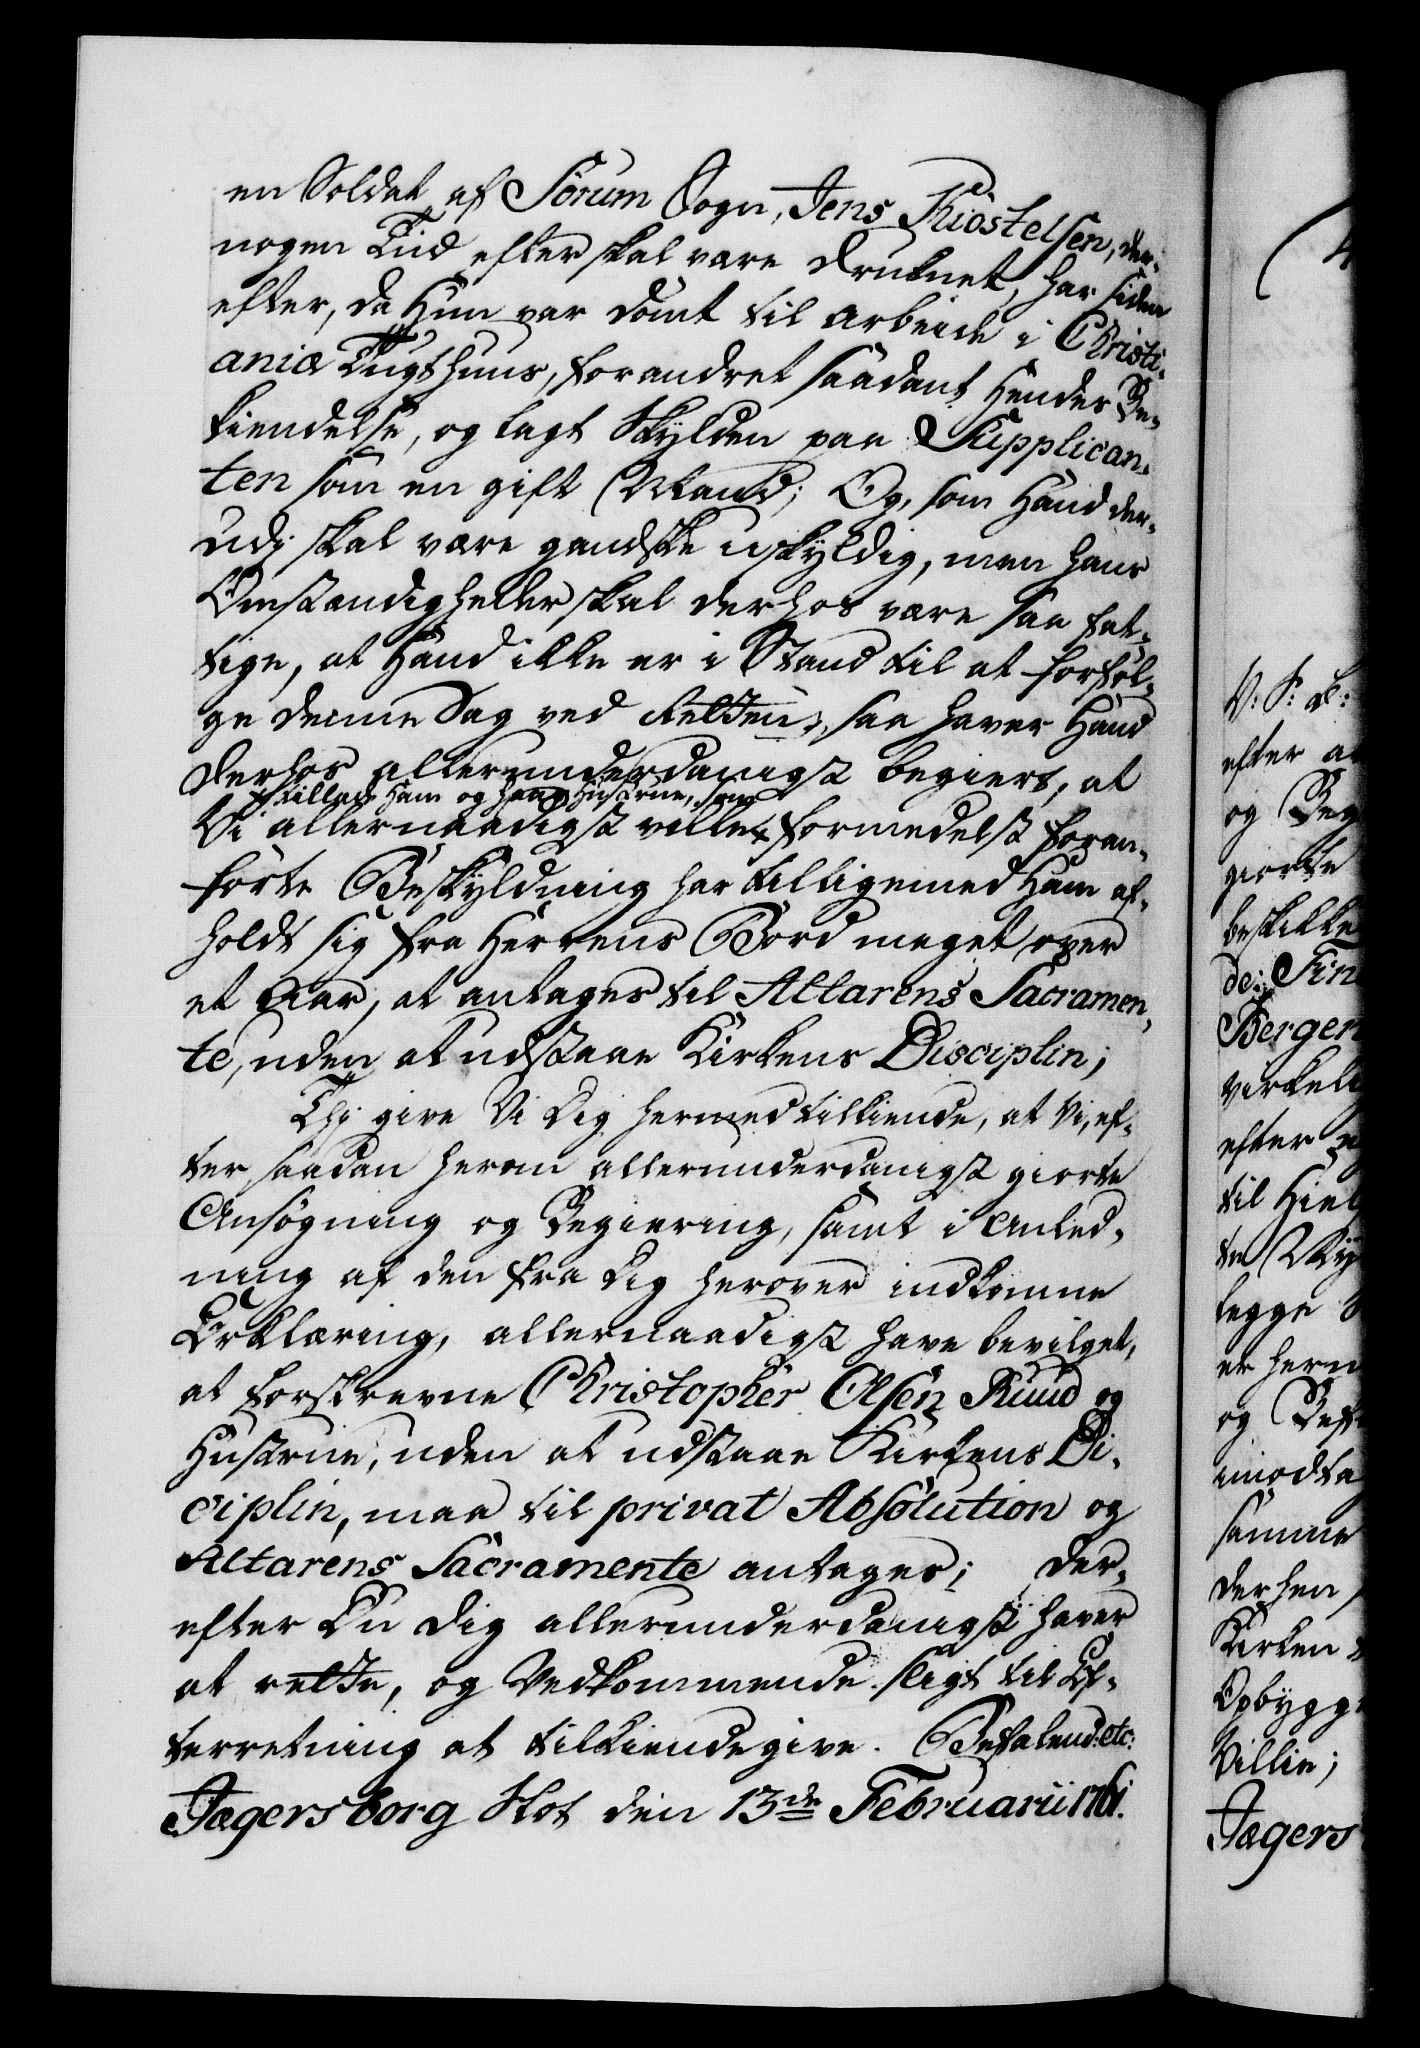 en Soldat af Sørum Sogn, Jens Kiostelsen, der-
nogen Tiid efter skal være druknet, har siden
efter, da Hun var dømt til Arbeide i Christi-
aniæ Tugthuus, forandret saadant Hendes Be-
kiendelse, og lagt Skylden paa Supplican-
ten som en gift Mand; Og, som Hand der-
udj skal være gandske uskyldig, men hans
Omstændigheder skal derhos være saa fat-
tige, at Hand ikke er i Stand til at forføl-
ge denne Sag ved Retten; saa haver Hand
derhos allerunderdanigst begiert, at
tillade Ham og Hans Hustrue, som
Vi allernaadigst ville formedelst foran-
førte Beskyldning har tilligemed Ham af-
holdt sig fra Herrens Bord meget over
et Aar, at antages til Altarens Sacramen-
te, uden at udstaae Kirkens Disciplin;
Thj give Vi Dig hermed tilkiende, at Vi, ef-
ter saadan herom allerunderdanigst giorte
Ansøgning og Begiering, samt i Anled-
ning af den fra Dig herover indkomne
Erklæring, allernaadigst have bevilget,
at forskrevne Christopher Olsen Ruud og
Hustrue, uden at udstaae Kirkens Di-
ciplin, maa til privat Absolution og
Altarens Sacramente antages; Der-
efter Du Dig allerunderdanigst haver
at rette, og Vedkommende sligt til Ef-
terretning at tilkiendegive. Befalend: etc:
Jægersborg Slot den 13de Februarii 1761.
V: S: B:
efter
og Beg
giorte
beskikke
de: Fin
Bergen
virkeli
efter
til Hiel
legge
er herm
og Bef
imodta
samme
derhen
Kirken
Opbygge
Villie;
Jægers